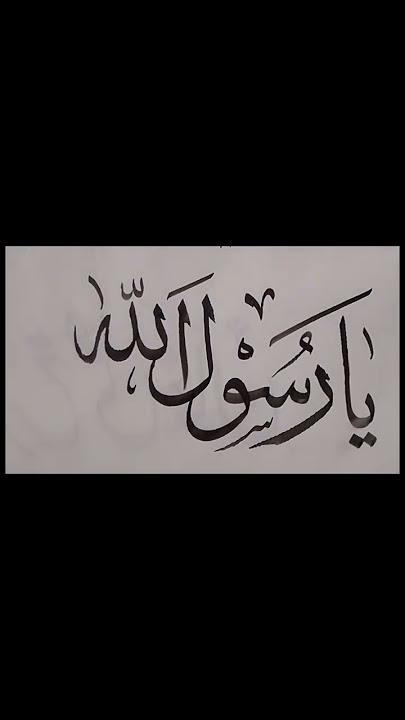 يا رَسُوْل الله